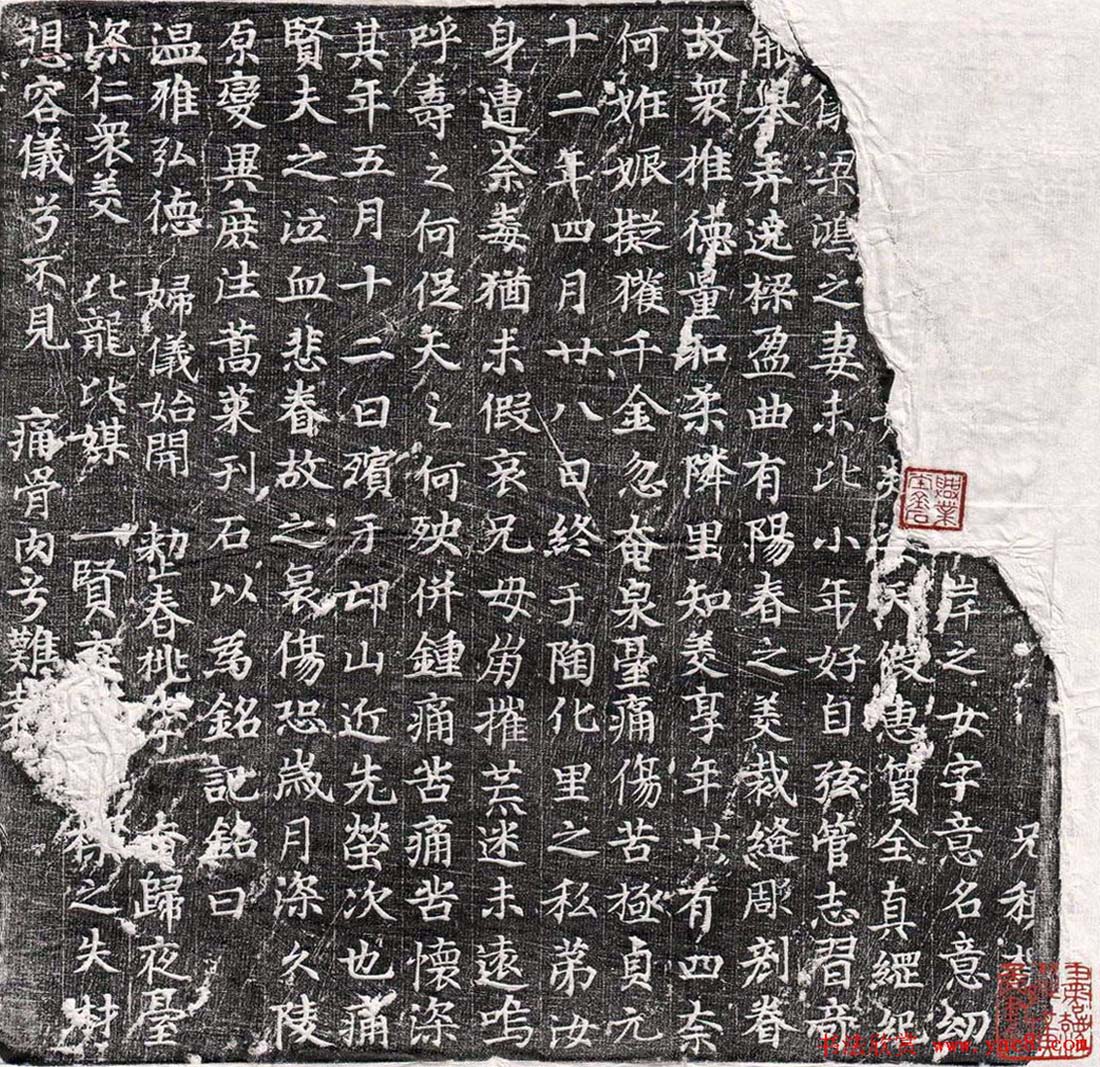 兄
岸之女字意名意紉
天假惠質全真經紀
梁鴻之妻未比小年好自弦管志習音
能舉弄遶樑盈曲有陽春之美裁縫彫剋眷
故衆推德量和柔隣里知美享年廿有四奈
何姙娠擬獾千金忽奄泉臺痛傷苦極貞元
十二年四月廿八日終于陶化里之私第汝
身遭荼毒猶未假哀兄母崩摧荒迷未遠嗚
呼壽之何促夭之何殃併鍾痛苦痛苦懷深
其年五月十二日殯于邙山近先塋次也痛
賢夫之泣血悲眷故之哀傷恐歲月深久陵
原變異庶注蒿萊刊石以爲銘記銘曰
温雅弘德 婦儀始開 勑春桃李 奄歸夜臺
深仁衆美 比龍比媒 一賢 之失對
想容儀兮不見 痛骨肉兮難
书法欣赏 www.yac8.com